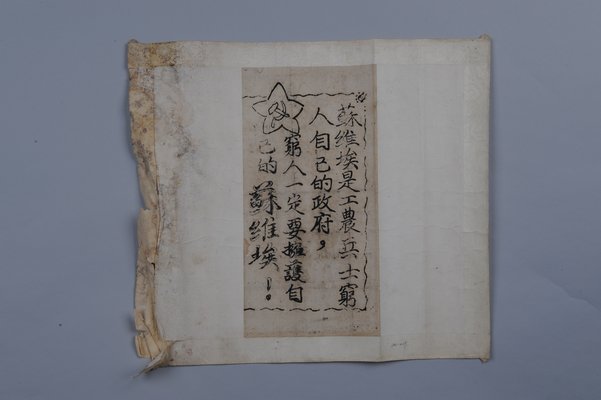 蘇維埃是工農兵士窮
人自己的政府，
窮人一定要擁護自
己的蘇維埃！。